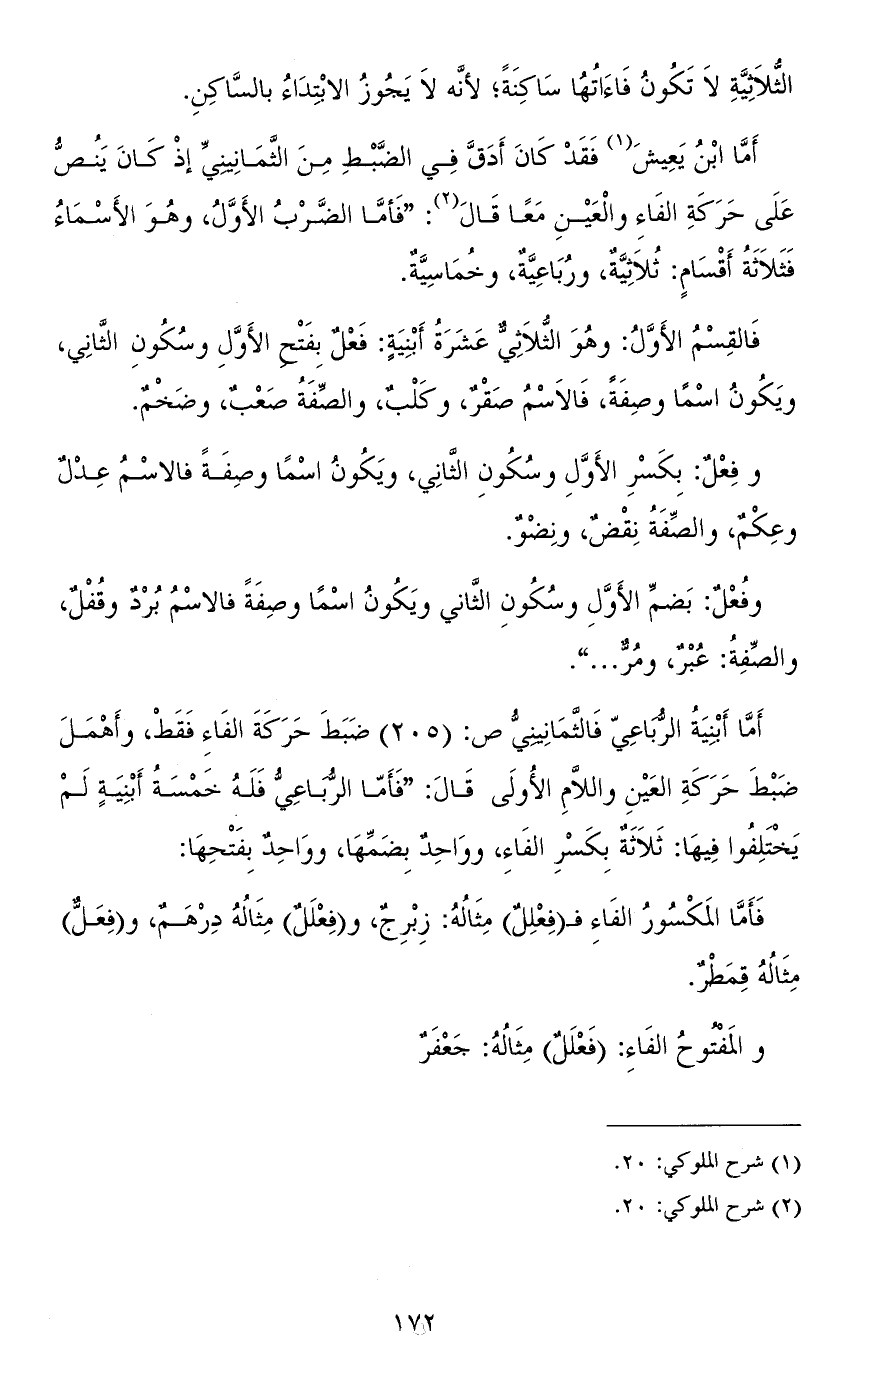 الثُّلاَثِيَّةِ لاَ تَكُونُ فَاءَاتُهَا سَاكِنَةً؛ لأنَّه لاَ يَجُوزُ الابْتِدَاءُ بالسَّاكِنِ.
أَمَّا ابْنُ يَعِيشَ(١) فَقَدْ كَانَ أَدَقَّ فِي الضَّبْطِ مِنَ الثَّمَانِينِيِّ إذْ كَانَ يَنُصُّ
عَلَى حَرَكَةِ الفَاءِ والْعَيْنِ مَعًا قَالَ(٢): ”فَأمَّا الضَّرْبُ الأوَّلُ، وهُوَ الأَسْمَاءُ
فَثَلاَثَةُ أَقْسَامٍ: ثُلاَثِيَّةٌ، ورُبَاعِيَّةٌ، وخُمَاسِيَّةٌ.
فَالقِسْمُ الأَوَّلُ: وهُوَ الثُّلاَثِيُّ عَشَرَةُ أَبْنِيَةٍ: فَعْلٌ بِفَتْحِ الأَوَّلِ وسُكُونِ الثَّانِي،
ويَكُونُ اسْمًا وصِفَةً، فَالاَسْمُ صَقْرٌ، وكَلْبٌ، والصِّفَةُ صَعْبٌ، وضَخْمٌ.
و فِعْلٌ: بِكَسْرِ الأَوَّلِ وسُكُونِ الثَّانِي، ويَكُونُ اسْمًا وصِفَةً فالاسْمُ عِدْلٌ
وعِكْمٌ، والصِّفَةُ نِقْضٌ، ونِضْوٌ.
وفُعْلٌ: بَضمِّ الأَوَّلِ وسُكُونِ الثَّانِي ويَكُونُ اسْمًا وصِفَةً فالاسْمُ بُرْدٌ وقُفْلٌ،
والصِّفِةُ: عُبْرٌ، ومُرٌّ...“.
أَمَّا أَبْنِيَةُ الرُّبَاعِيّ فَالثَّمَانِينِيُّ ص: (٢٠٥) ضَبَطَ حَرَكَةَ الفَاءِ فَقَطْ، وأَهْمَلَ
ضَبْطَ حَرَكَةِ العَيْنِ واللاَّمِ الأُولَى قَالَ: ”فَأَمّا الرُّبَاعِيُّ فَلَهُ خَمْسَةُ أَبْنِيَةٍ لَمْ
يَخْتَلِفُوا فِيهَا: ثَلاَثَةٌ بِكَسْرِ الفَاءِ، ووَاحِدٌ بِضَمِّهَا، ووَاحِدٌ بِفَتْحِهَا:
فَأَمَّا المَكْسُورُ الفَاءِ فـ(فِعْلِلٌ) مِثَالُهُ: زِبْرِجٌ، و(فِعْلَلٌ) مِثَالُهُ دِرْهَمٌ، و(فِعَلٌّ)
مِثَالُهُ قِمَطْرٌ.
و المَفْتُوحُ الفَاءِ: (فَعْلَلٌ) مِثَالُهُ: جَعْفَرٌ
(١) شرح الملوكي: ٢٠.
(٢) شرح الملوكي: ٢٠.
١٧٢